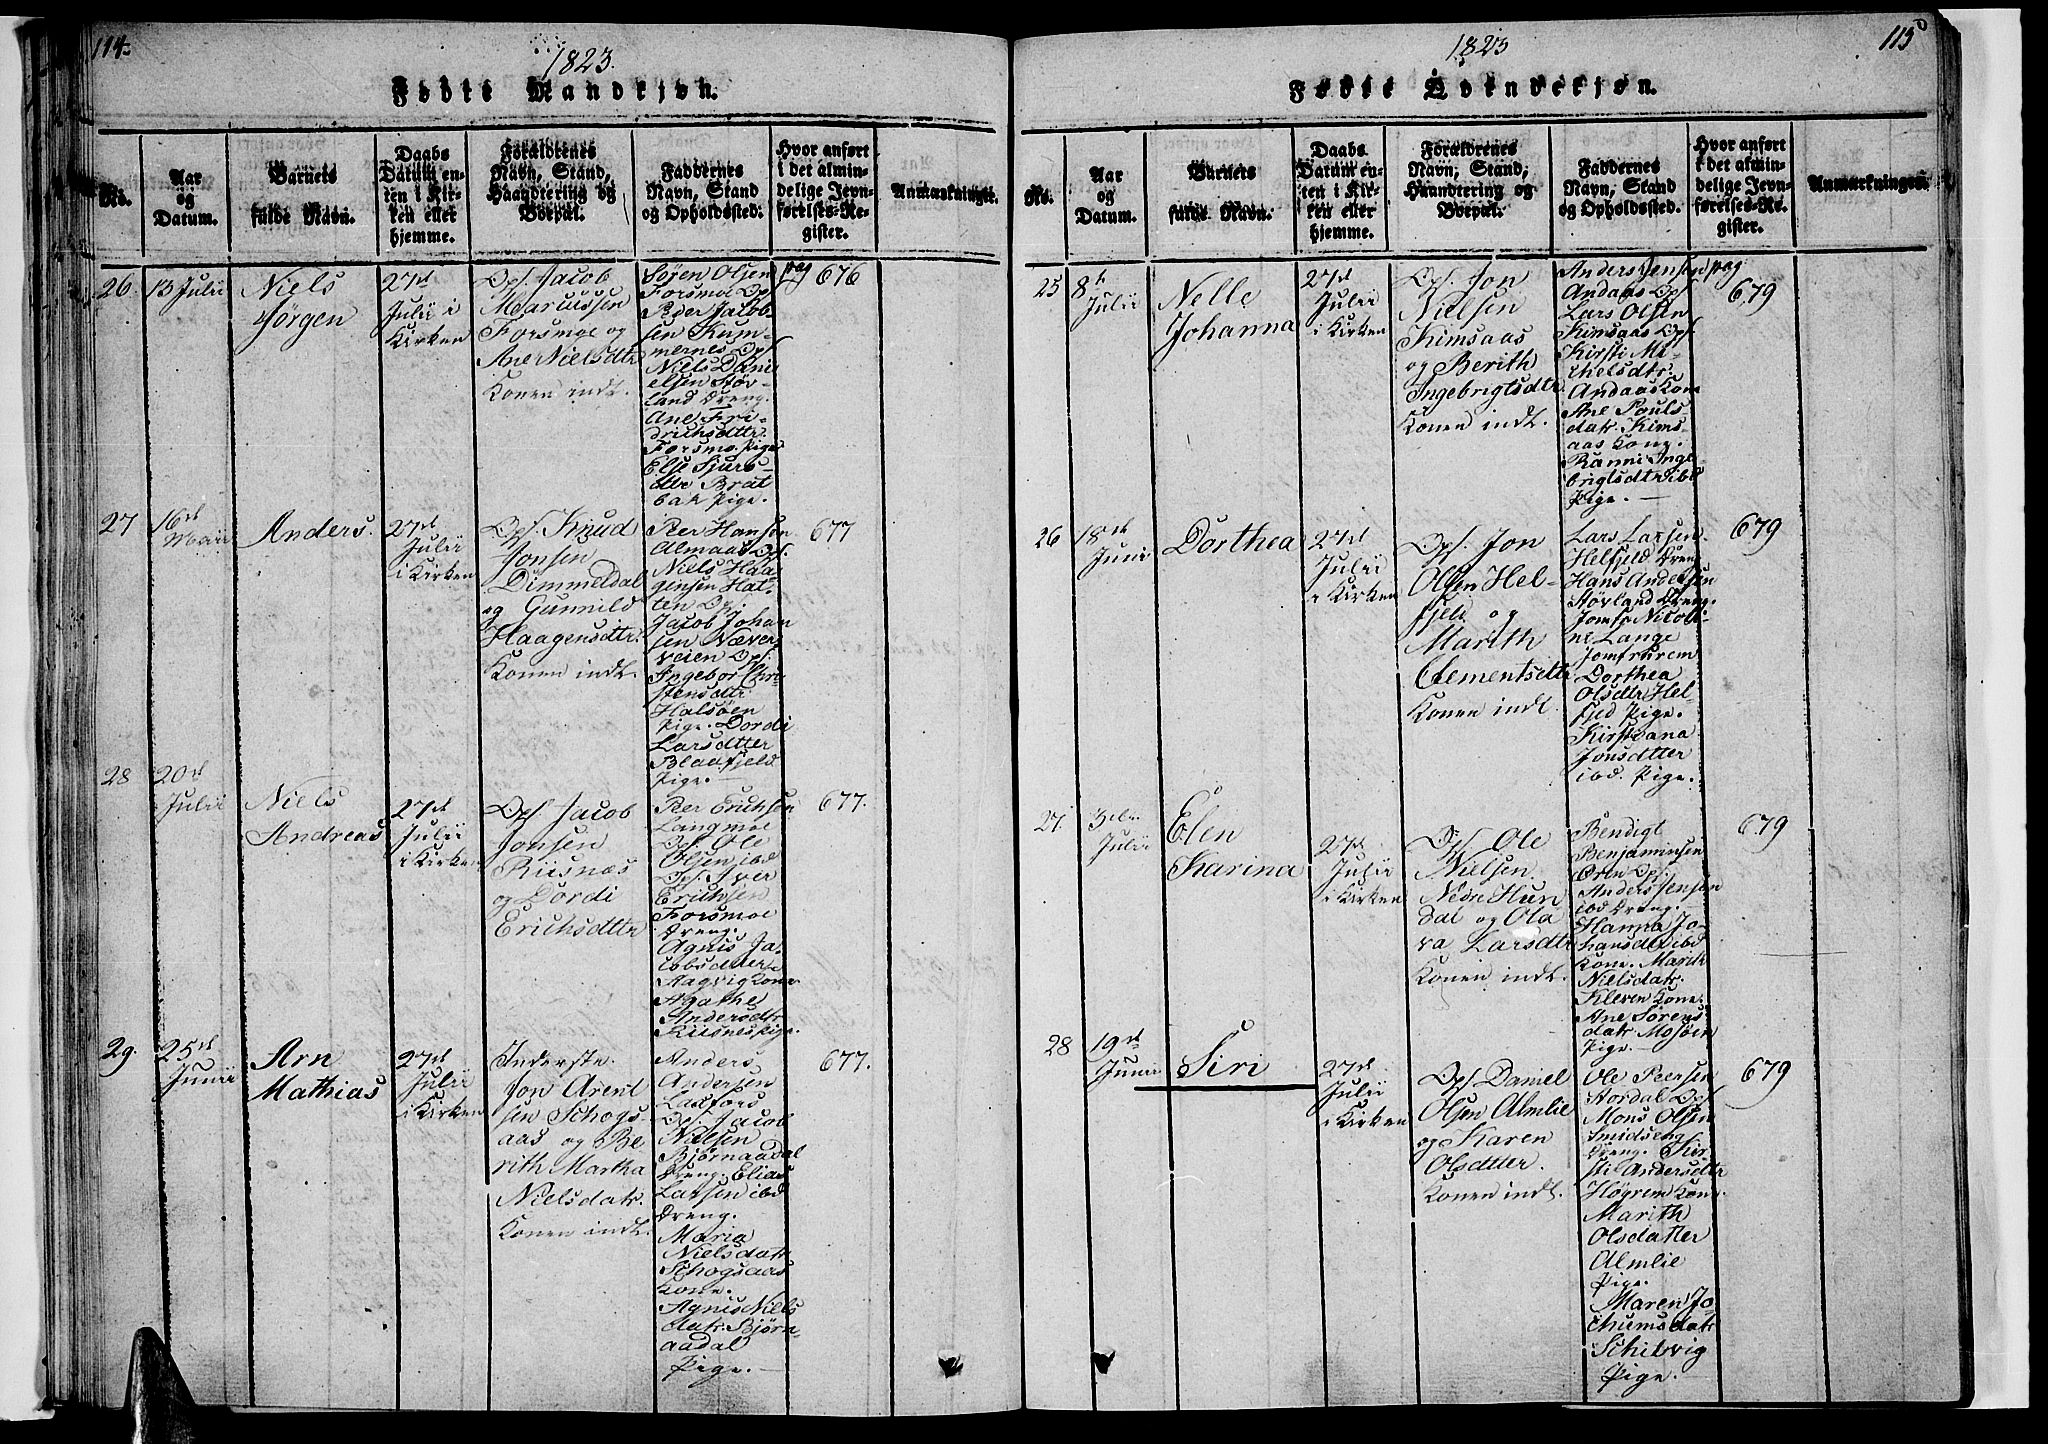 114.
1823.
Fødte Mandkjøn.
No.
Aar og Datum.
Barnets fulde Navn.
Daabs Datum enten i Kirken eller hjemme.
Forældrenes Navn, Stand, Haandtering og Boepæl.
Faddernes Navn, Stand og Opholdssted.
Hvor anført i det almindelige Jevnførelses-Register.
Anmærkninger.
26
13 Julii
Niels
Jörgen
27de
Julii i
Kirken
Ops. Jacob
Marcussen
Forsmoe og
Ane Nielsdtr
Konen indt.
Sören Olsen
Forsmoe Ops
Peder Jacob-
sen Kum-
mernes Ops
Niels Dani
elsen Stöv-
land Dreng.
Ane Fri-
drichsdtter
Forsmo Pige
Else Sjurs-
dtr Brat
bak Pige.
pag 676
27
16de
Maii
Anders.
27de
Julii
i Kirken
Ops. Knud
Jonsen
Dimmeldal
og Gunnild
Haagensdtr.
Konen indt.
Peer Hansen
Almaas Ops.
Niels Haa
gensen Hat-
ten Ops
Jacob Johan
sen Næver
veien Ops.
Ingebor Chri-
stensdtr
Halsöen
Pige. Dordi
Larsdtter
Blaafjeld
Pige.
677
28
20de
Julii
Niels
Andreas
27de
Julii
i Kirken
Ops Jacob
Jonsen
Riisnæs
og Dordi
Erichsdtter
Peer Erichsen
Langmoe
Ops. Ole
Olsen ibd
Ops. Iver
Erichsen
Forsmoe
Dreng.
Agnis Ja-
cobsdtter
Aagvig Kone
Agathe
Andersdtr
Riisnes Pige.
677.
29.
25de
Junii
Arn
Mathias
27de
Julii
i Kirken
Inderste
Jon Arent
sen Schogs-
aas og Be
rith Martha
Nielsdatr.
Konen indt.
Anders
Andersen
Laxfors
Ops. Jacob
Nielsen
Björnaadal
Dreng. Elias
Larsen ibd
Dreng.
Maria
Nielsdatr
Schogsaas
Kone.
Agnis Niels
datr. Björn-
aadal
Pige.
677.
115
1823
Fødte Qvindekjøn.
No.
Aar og Datum.
Barnets fulde Navn.
Daabs Datum enten i Kirken eller hjemme.
Forældrenes Navn, Stand, Haandtering og Boepæl.
Faddernes Navn, Stand og Opholdssted.
Hvor anført i det almindelige Jevnførelses-Register.
Anmærkninger.
25
8de
Julii
Nelle
Johanna
27de
Julii
i Kirken
Ops. Jon
Nielsen
Kimsaas
og Berith
Ingebrigtsdtr.
Konen indt.
Anders Jensen
Andaas Ops
Lars Olsen
Kimsaas Ops.
Kirsti Mi-
chelsdtr.
Andaas Kone
Ane Pouls-
datr. Kims-
aas Kone.
Ranni Inge
brigtsdtr ibd
Pige.
pag.
679
26
18de
Juni
Dorthea
27de
Julii
i Kirken
Ops. Jon
Olsen Hel-
fjeld og
Marith
Clementsdtr
Konen indt.
Lars Larsen
Helfjeld Dreng
Hans Andersen
Stövland Dreng.
Jomfr Nicoli-
ne Lange
Dorthea
Olsdtr Hel-
fjeld Pige.
Kirstiana
Jonsdtter
ibd. Pige.
679
27.
Julii
Elen
Karina
27de
Julii
i Kirken
Ops. Ole
Nielsen
Nedre Hun
dal og Ola
va Larsdtr
Konen indt.
Bendigt
Benjaminsen
Ören Ops.
Anders Jensen
ibd Dreng.
Hanna Jo-
hansdtr ibd
Kone. Marith
Nielsdatr.
Kleven Kone.
Ane Sörens
datr Mosöen
Pige.
679
28
19de
Junii
Siri
27de
Julii
i Kirken
Ops. Daniel
Olsen Almlie
og Karen
Olsdtter.
Konen indt.
Ole Peersen
Stordal Ops
Mons Olsen
Smidseng
Dreng. Kir
sti Andersdtr
Högrem Kone.
Marith
Olsdatter
Almlie
Pige.
Maren Jo-
chumsdatr
Schjelvig
Pige.
679